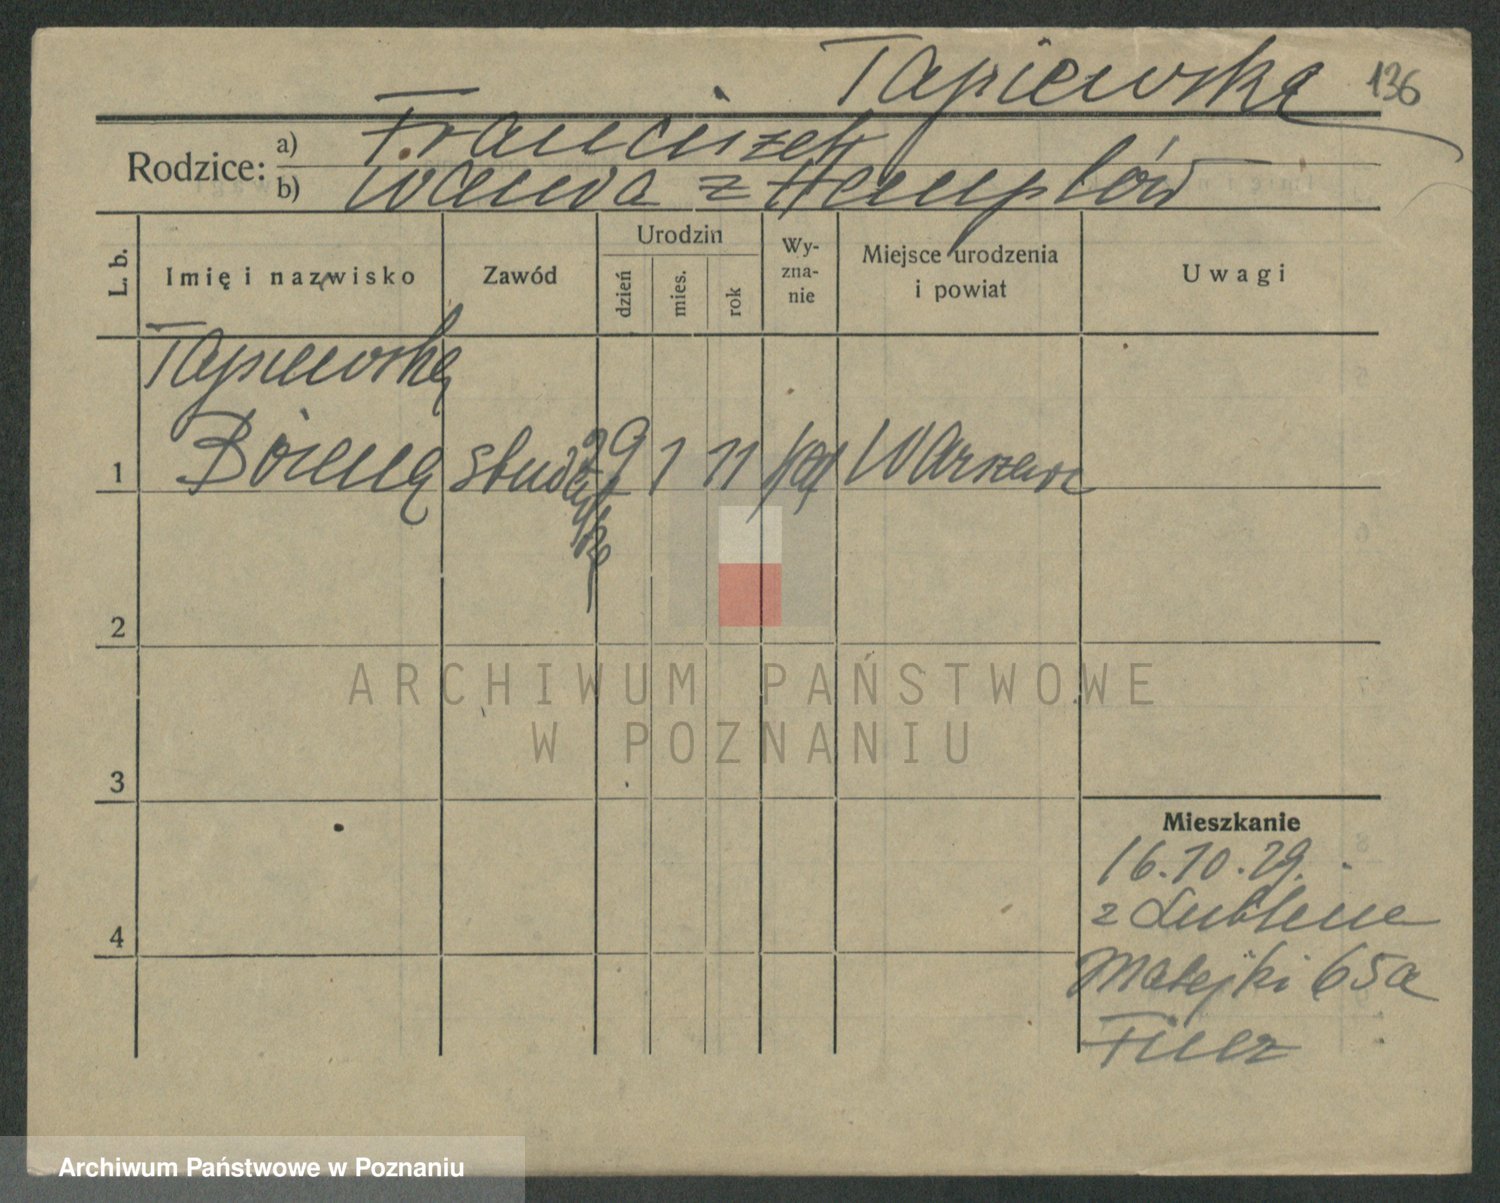 Tapiewska 136
Rodzice: a) Franciszek
b) Wanda z Hemplów
L. b. Imię i nazwisko Zawód Urodzin dzień mies. rok Wyznanie Miejsce urodzenia i powiat Uwagi
Tapiewska
1 Bożena studentka 29 1 11 kat Warszawa
2
ARCHIWUM PAŃSTWOWE
W POZNANIU
3
Mieszkanie
16.10.29.
z Lublina
4
Matejki 65a
Archiwum Państwowe w Poznaniu